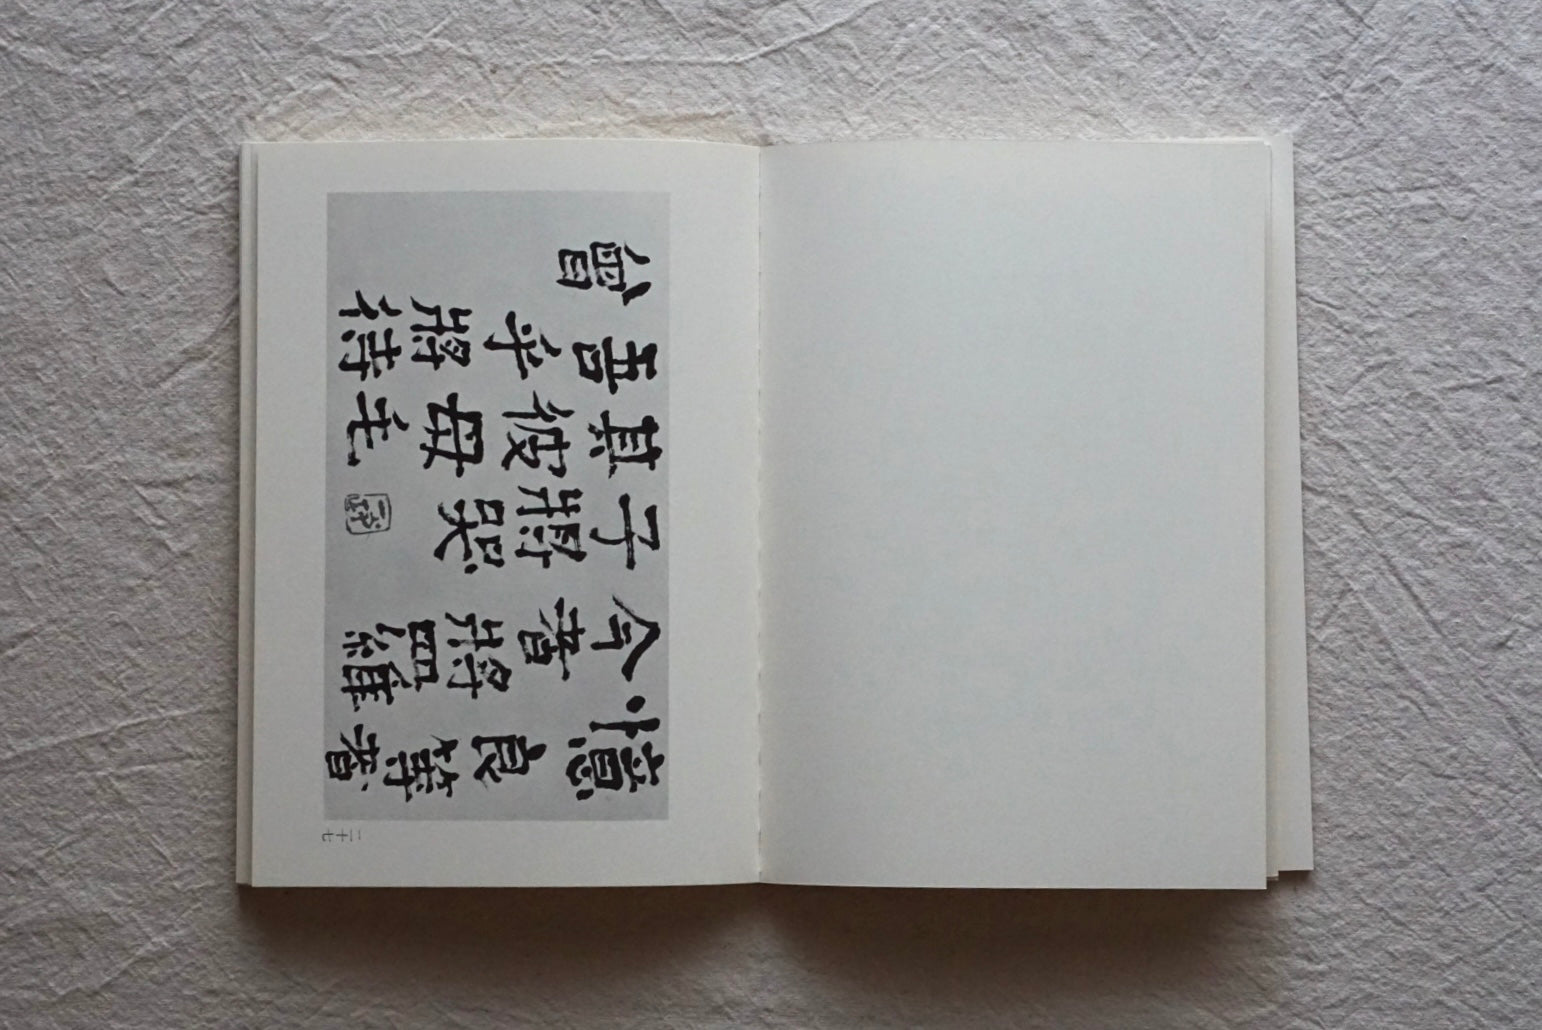 憶良等者
今者將羅
子將哭
其彼母毛
吾乎將待
曾
二十七